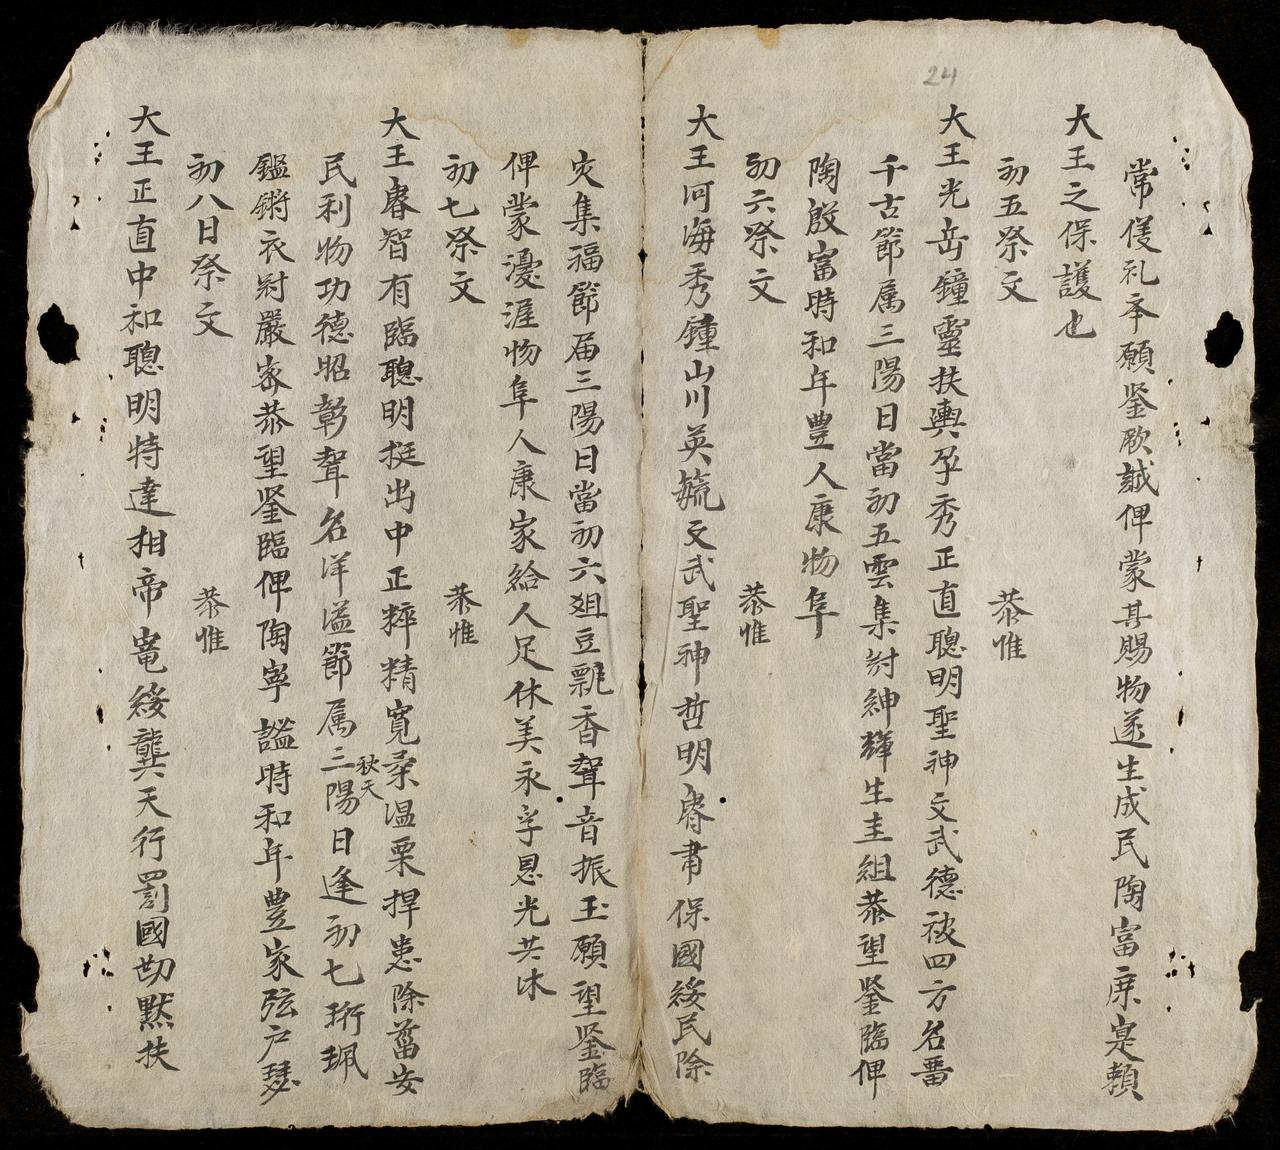 24
常俴礼夲願鉴厥誠俾蒙其賜物遂生成民陶富庶寔頼
大王之保護也
初五祭文 恭惟
大王光岳鐘靈扶輿孕秀正直聰明聖神文武德被四方名畨
千古節属三陽日當初五雲集討紳輝生圭組恭望鉴臨俾
陶殷富時和年豊人康物阜
初六祭文 恭惟
大王河海秀鐘山川英毓文武聖神哲明睿肅保國綏民除
灾集福節届三陽日當初六爼豆飄香聲音振玉願望鉴臨
俾蒙瀀渥物阜人康家給人足休美永孚恩光共沐
初七祭文 恭惟
大王睿智有臨聰明挺出中正粹精寛柔温栗捍患除菑安
民利物功德昭彰聲名洋溢節属三陽日逢初七珩珮
秋天
鏘衣尉嚴宻恭望鉴臨俾陶寧謐時和年豊家弦户瑟
初八日祭文 恭惟
大王正直中和聰明特達相帝寵綏龔天行罰國劻黙扶